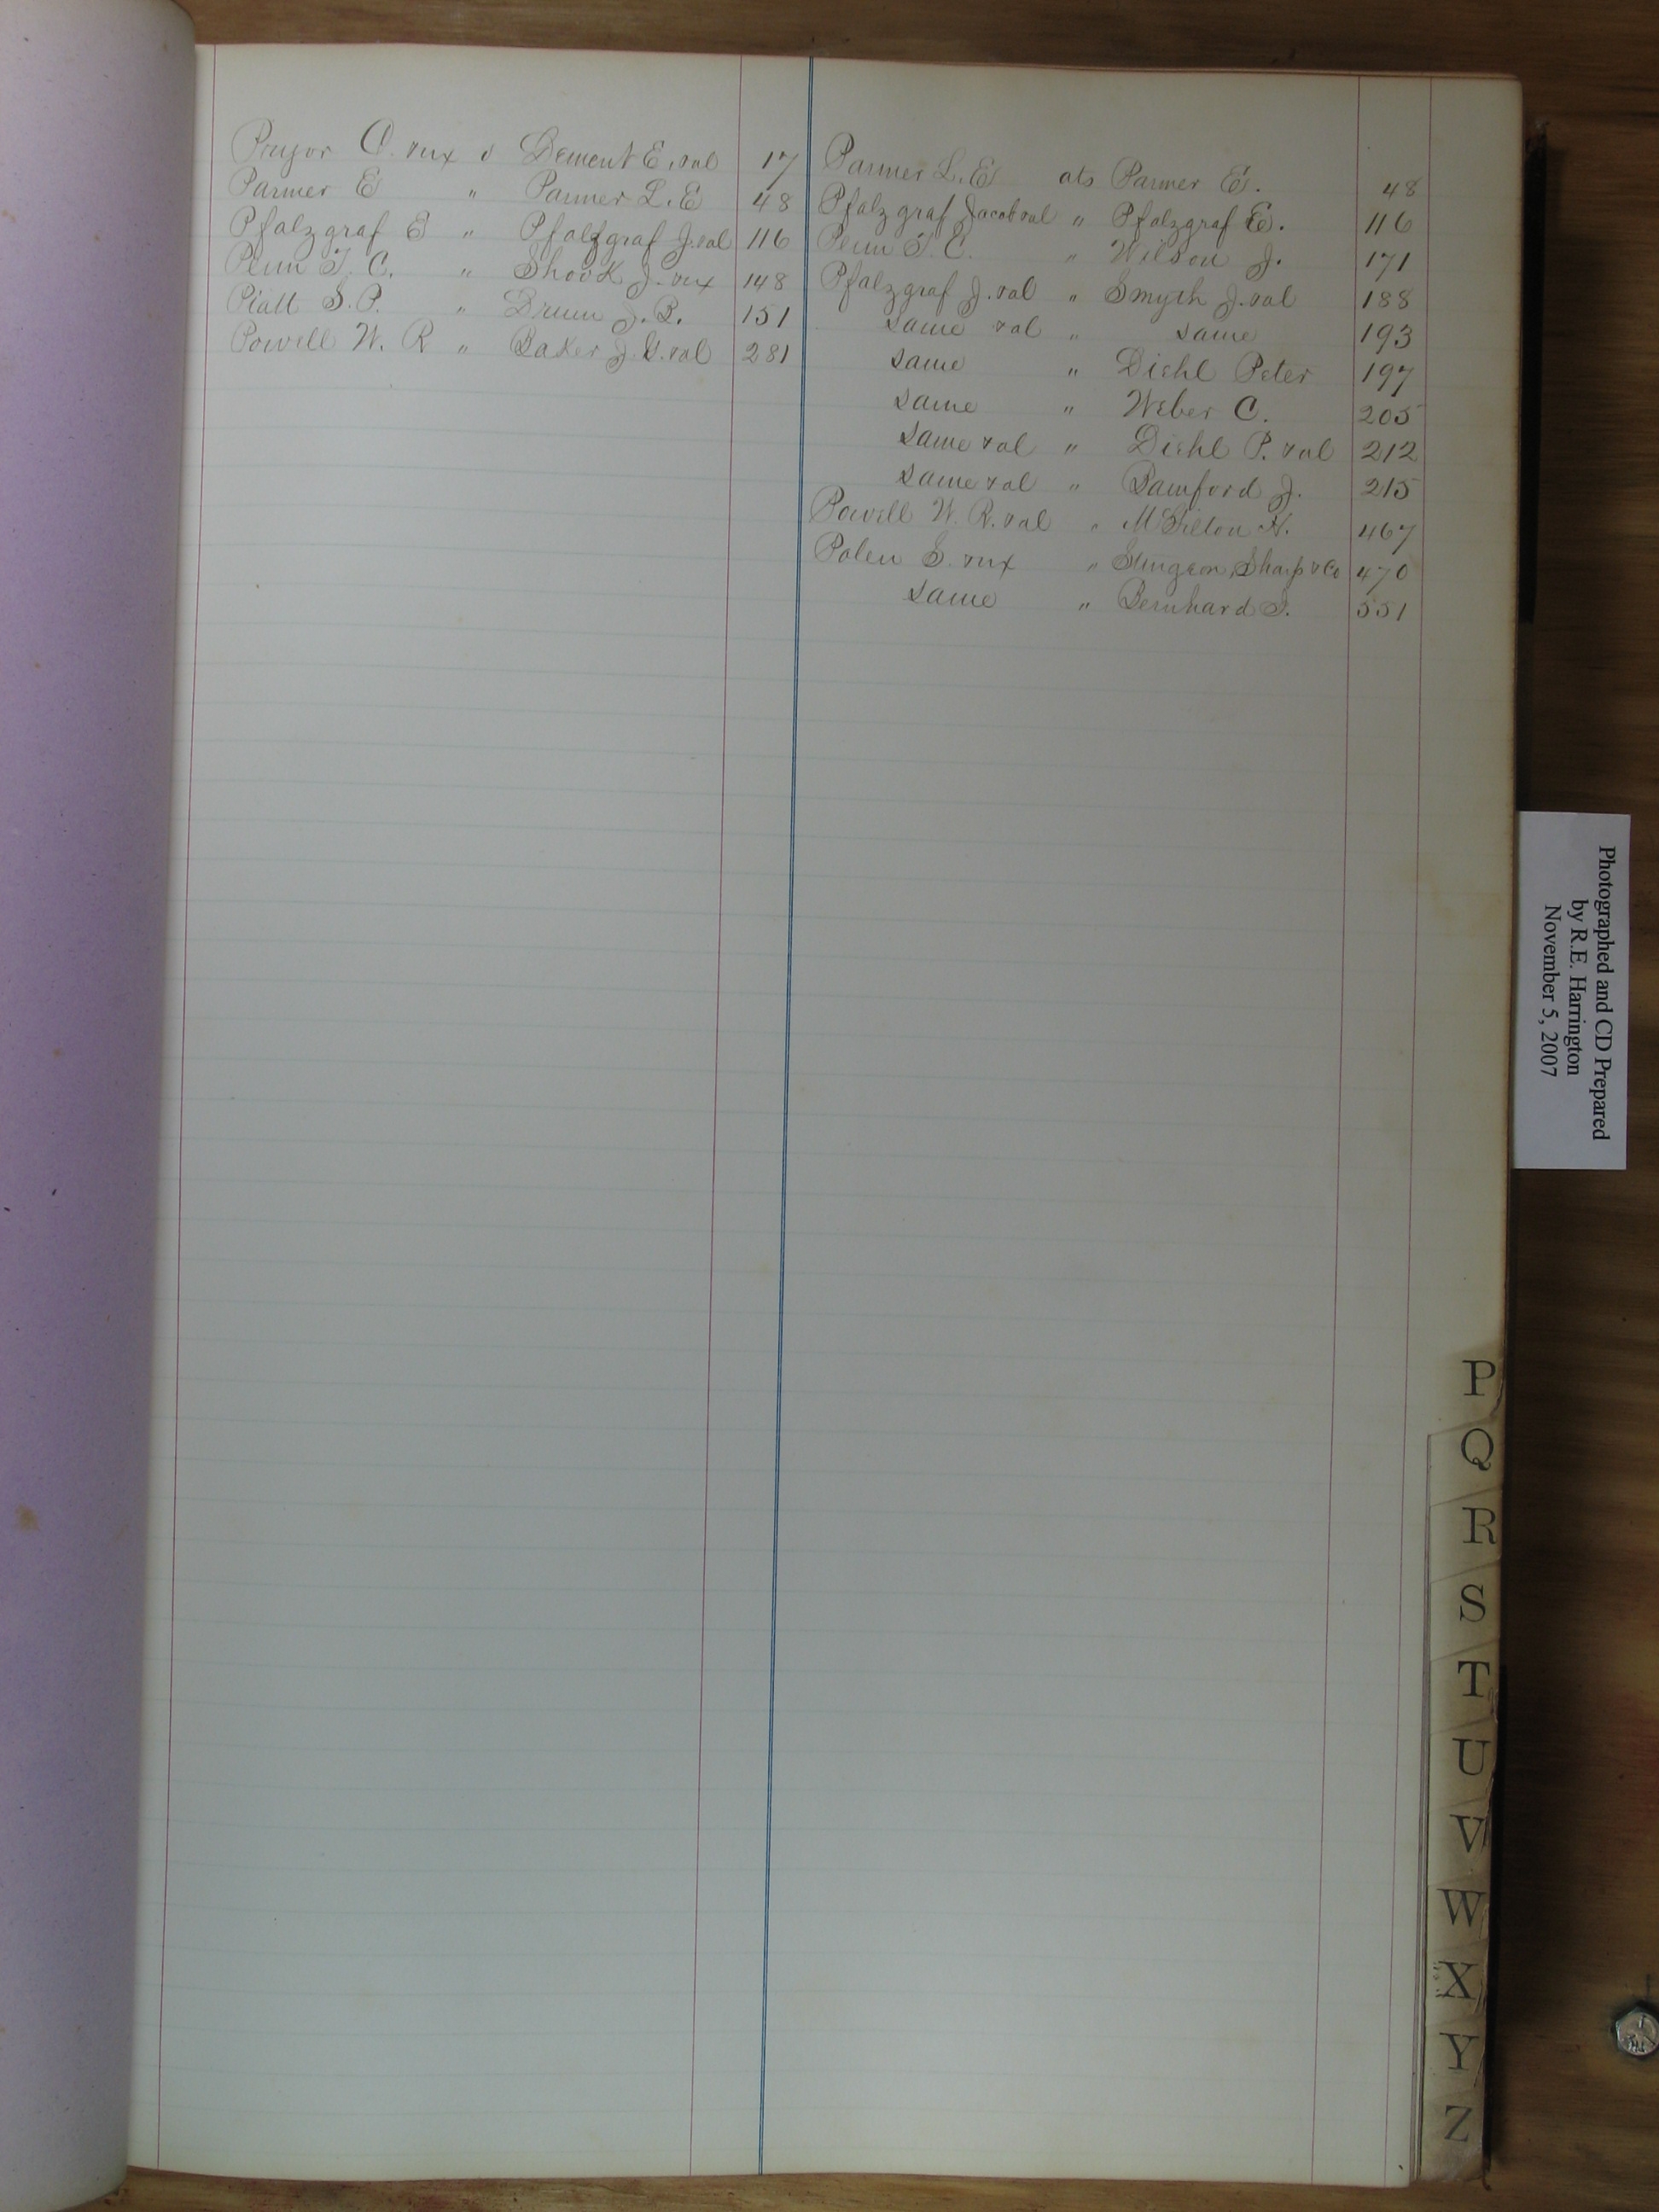 Pryor C. &ux v Dement E. &al 17
Parmer E " Parmer L. E 48
Pfalzgraf E " Pfalzgraf J. &al 116
Penn T. C. " Shook J. &ux 148
Piatt S. P. " Drum J. B. 151
Powell W. R " Baker J. G. &al 281
Parmer L. E. ats Parmer E. 48
Pfalzgraf Jacob &al " Pfalzgraf E. 116
Penn T. C. " Wilson J. 171
Pfalzgraf J. &al " Smyth J. &al 188
same &al " same 193
same " Diehl Peter 197
same " Weber C. 205
same &al " Diehl P. &al 212
same &al " Bamford J. 215
Powell W. R. &al " H. 467
Polen S. &ux " Sturgeon, Sharp & Co 470
same " Bernhard 551
Photographed and CD Prepared
by R.E. Harrington
November 5, 2007
P
Q
R
S
T
U
V
W
X
Y
Z